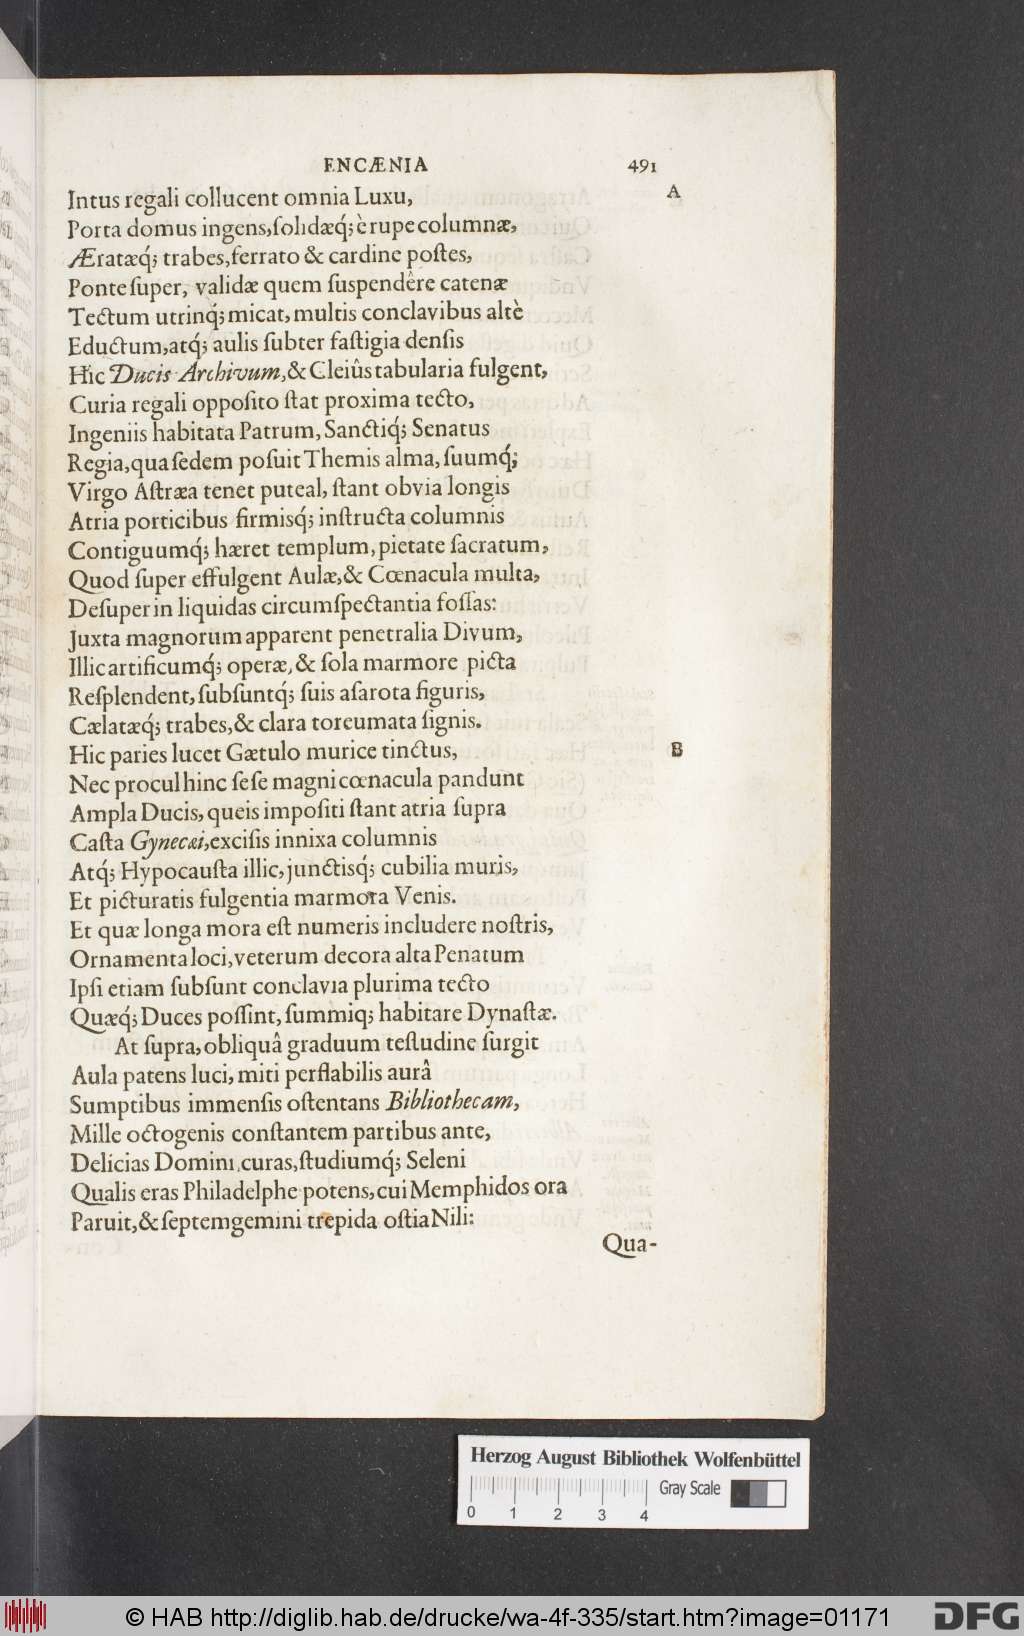 ENCÆNIA 491
A
Intus regali collucent omnia Luxu,
Porta domus ingens, ſolidæq́; è rupe columnæ,
Æratæq́; trabes, ferrato & cardine poſtes,
Ponte ſuper, validæ quem ſuspendêre catenæ
Tectum utrinq́; micat, multis conclavibus altè
Eductum, atq́; aulis ſubter faſtigia denſis
Hic Ducis Archivum, & Cleiûs tabularia fulgent,
Curia regali oppoſito ſtat proxima tecto,
Ingeniis habitata Patrum, Sanctiq́; Senatus
Regia, qua ſedem poſuit Themis alma, ſuumq́;
Virgo Aſtræa tenet puteal, ſtant obvia longis
Atria porticibus firmisq́; inſtructa columnis
Contiguumq́; hæret templum, pietate ſacratum,
Quod ſuper effulgent Aulæ, & Cœnacula multa,
Deſuper in liquidas circumſpectantia foſſas:
Juxta magnorum apparent penetralia Divum,
Illic artificumq́; operæ, & ſola marmore picta
Reſplendent, ſubſuntq́; ſuis aſarota figuris,
Cælatæq́; trabes, & clara toreumata ſignis.
Hic paries lucet Gætulo murice tinctus,
B
Nec procul hinc ſeſe magni cœnacula pandunt
Ampla Ducis, queis impoſiti ſtant atria ſupra
Caſta Gynecæi, exciſis innixa columnis
Atq́; Hypocauſta illic, junctisq́; cubilia muris,
Et picturatis fulgentia marmora Venis.
Et quæ longa mora eſt numeris includere noſtris,
Ornamenta loci, veterum decora alta Penatum
Ipſi etiam ſubſunt conclavia plurima tecto
Quæq́; Duces poſſint, ſummiq; habitare Dynaſtæ.
At ſupra, obliquâ graduum teſtudine ſurgit
Aula patens luci, miti perflabilis aurâ
Sumptibus immenſis oſtentans Bibliothecam,
Mille octogenis conſtantem partibus ante,
Delicias Domini, curas, ſtudiumq́; Seleni
Qualis eras Philadelphe potens, cui Memphidos ora
Paruit, & ſeptemgemini trepida oſtia Nili:
Qua-
Herzog August Bibliothek Wolfenbüttel
Gray Scale
0 1 2 3 4
© HAB http://diglib.hab.de/drucke/wa-4f-335/start.htm?image=01171
DFG